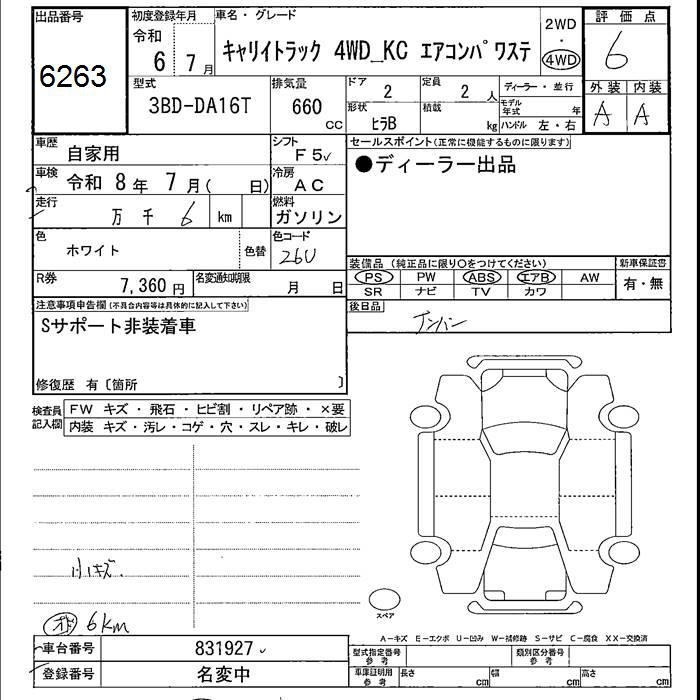 出品番号
6263
初度登録年月
令和
6 7月
車名・グレード
キャリイトラック 4WD_KC エアコンパワステ
2WD
・
4WD
評価点
6
外装 内装
A A
型式
3BD-DA16T
排気量
660
CC
ドア
2
定員
2 人
形状
ヒラB
積載
kg
ディーラー・並行
モデル年式 年
ハンドル 左・右
車歴
自家用
シフト
F5
車検
令和 8年 7月( 日)
冷房
AC
走行
万 千 6 km
燃料
ガソリン
色
ホワイト
色替
色コード
26U
R券
7,360 円
名変通知期限
月 日
セールスポイント(正常に機能するものに限ります)
●ディーラー出品
装備品 (純正品に限り○をつけてください)
新車保証書
PS PW ABS エアB AW
SR ナビ TV カワ
有・無
後日品
ナンバー
注意事項申告欄(不具合内容等は具体的に記入して下さい)
Sサポート非装着車
修復歴 有〔箇所 〕
検査員記入欄
FW キズ・飛石・ヒビ割・リペア跡・×要
内装 キズ・汚レ・コゲ・穴・スレ・キレ・破レ
小キズ.
6km
スペア
A-キズ E-エクボ U-凹み W-補修跡 S-サビ C-腐食 XX-交換済
車台番号
831927
登録番号
名変中
型式指定番号
参考
類別区分番号
参考
車庫証明用
参考
長さ cm
幅 cm
高さ cm